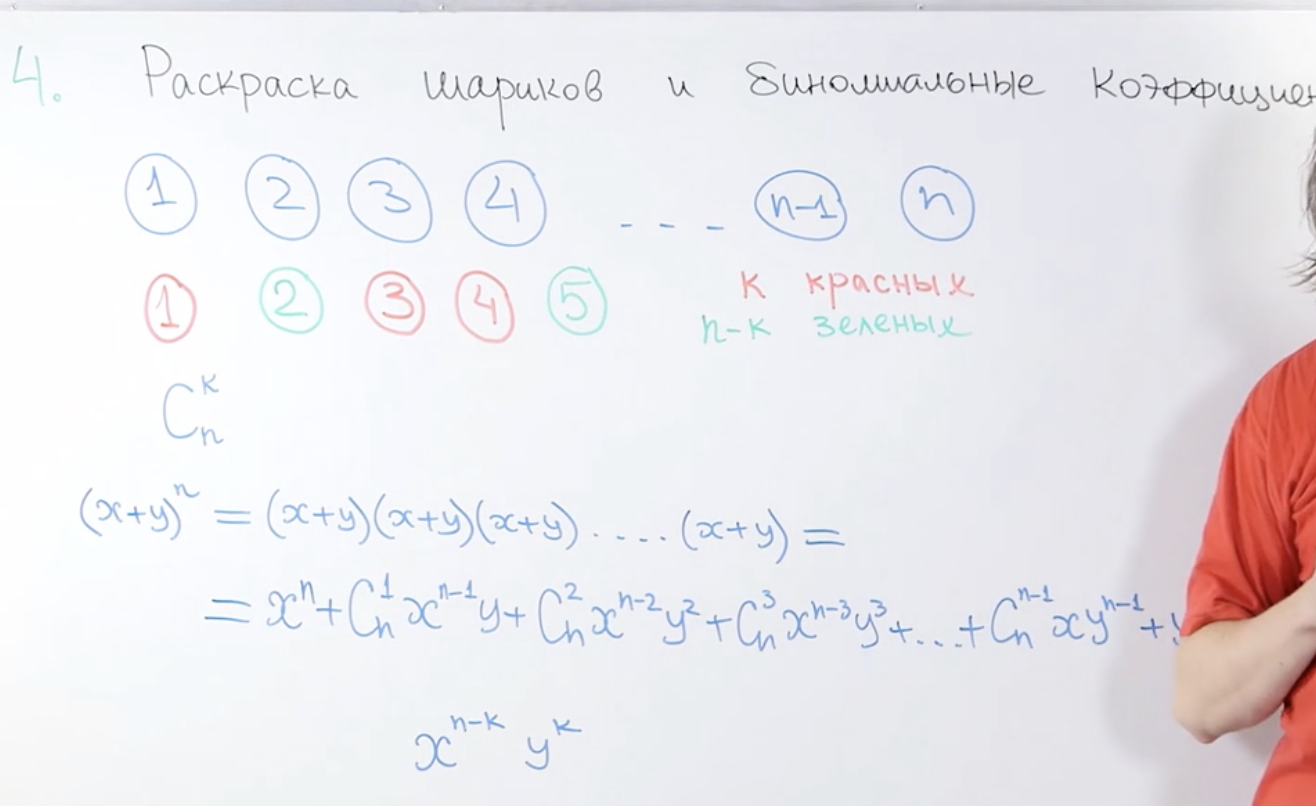 4. Раскраска шариков и биномиальные коэффициен
1 2 3 4 - - - n-1 n
1 2 3 4 5 k красных
n-k зеленых
Cₙᵏ
(x+y)ⁿ = (x+y)(x+y)(x+y)·....(x+y) =
= xⁿ + Cₙ¹xⁿ⁻¹y + Cₙ²xⁿ⁻²y² + Cₙ³xⁿ⁻³y³ + ... + Cₙⁿ⁻¹xyⁿ⁻¹ +
xⁿ⁻ᵏ yᵏ